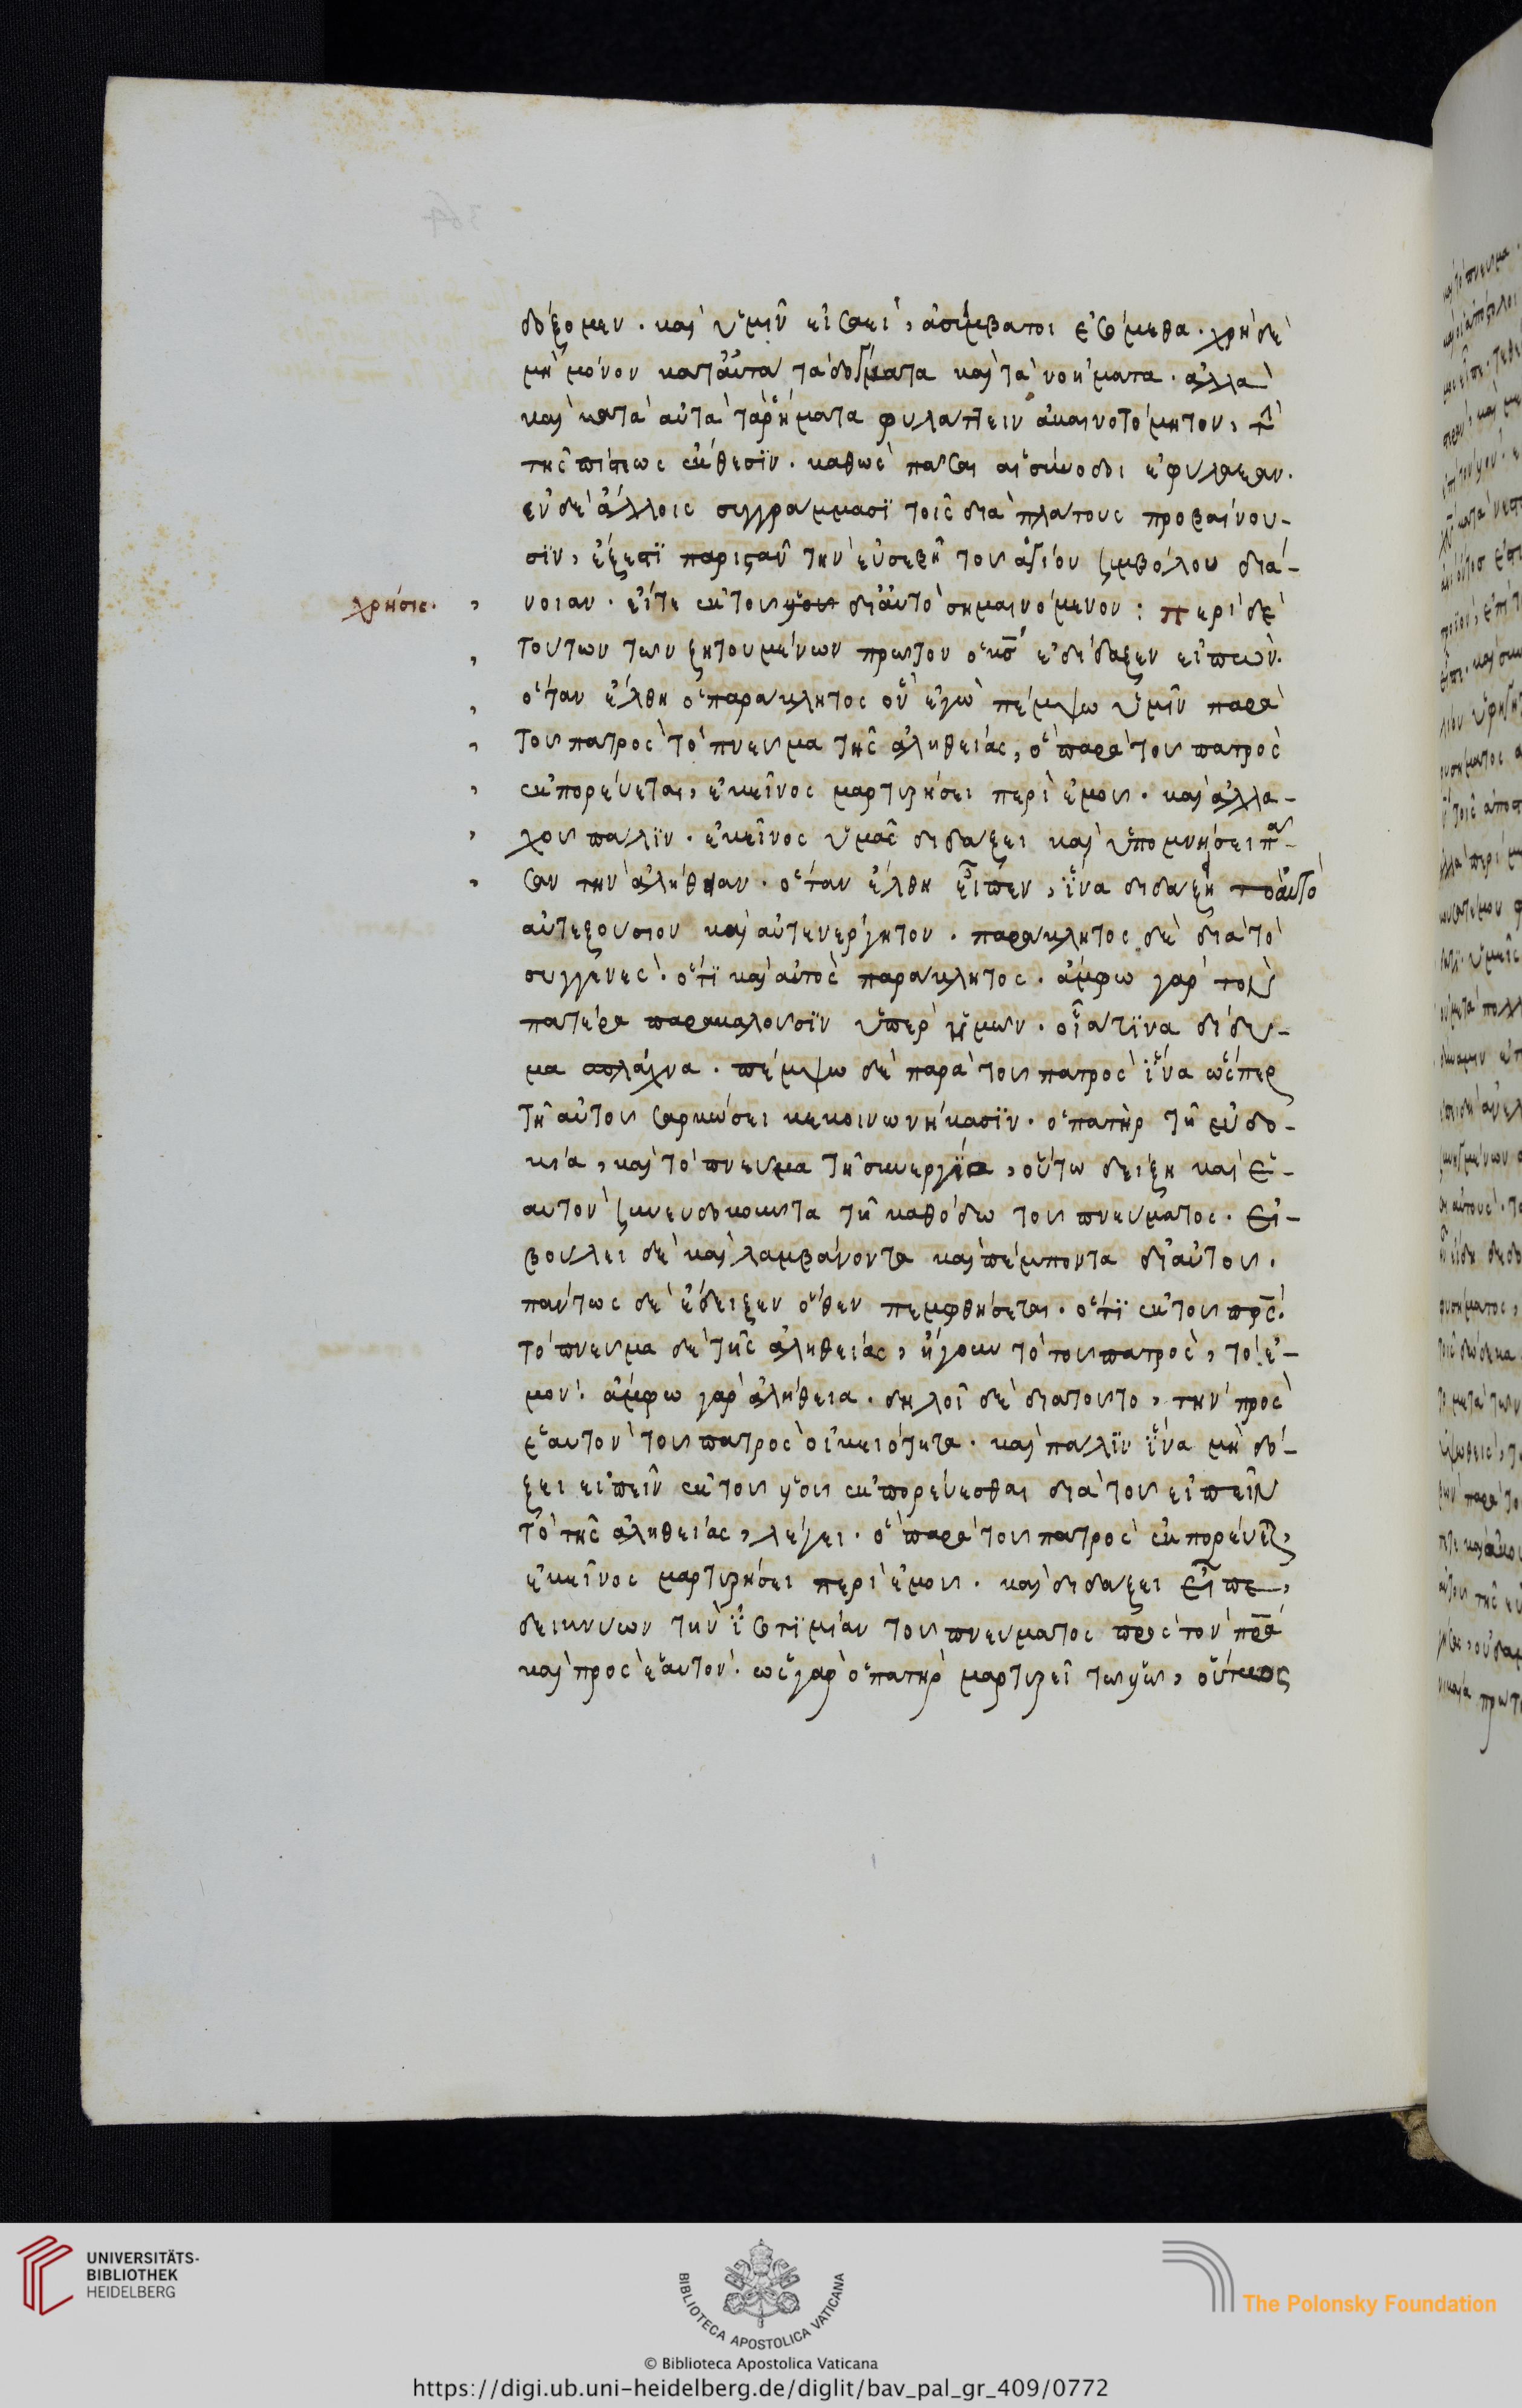 δόξομεν. καὶ ὑμῖν εἰσαεὶ, ἀσύμβατοι ἐσόμεθα. χρὴ δὲ
μὴ μόνον κατ' αὐτὰ τὰ δόγματα καὶ τὰ νοήματα. ἀλλὰ
καὶ κατὰ αὐτὰ τὰ ῥήματα φυλάττειν ἀκαινοτόμητον, τὴν
τῆς πίστεως ἔκθεσϊν. καθὼς πᾶσαι αἱ σύνοδοι ἐφύλαξαν.
ἐν δὲ ἄλλοις συγγράμμασϊ τοῖς διὰ πλάτους προβαίνου-
σϊν, ἔξεστϊ παριστᾶν τὴν εὐσεβῆ τοῦ ἁγίου συμβόλου διά-
χρῆσις. νοιαν. εἴτε ἐκ τοῦ υἱοῦ δι' αὐτὸ σημαινόμενον: περὶ δὲ
τούτων τῶν ζητουμένων πρῶτον ὁ κς ἐδίδαξεν εἰπών.
ὅταν ἔλθη ὁ παράκλητος ὃν ἐγὼ πέμψω ὑμῖν παρὰ
τοῦ πατρὸς τὸ πνεῦμα τῆς ἀληθείας, ὃ παρὰ τοῦ πατρὸς
ἐκπορεύεται, ἐκεῖνος μαρτυρήσει περὶ ἐμοῦ. καὶ ἀλλα-
χοῦ πάλϊν. ἐκεῖνος ὑμᾶς διδάξει καὶ ὑπομνήσει πᾶ-
σαν τὴν ἀλήθειαν. ὅταν ἔλθη εἶπεν, ἵνα διδάξη τὸ αὐτὸ
αὐτεξούσιον καὶ αὐτενέργητον. παράκλητος δὲ διὰ τὸ
συγγενές. ὅτϊ καὶ αὐτὸς παράκλητος. ἄμφω γὰρ τὸν
πατέρα παρακαλοῦσϊν ὑπὲρ ἡμῶν. οἷά τϊνα δίδυ-
μα σπλάχνα. πέμψω δὲ παρὰ τοῦ πατρὸς ἵνα ὥσπερ
τῇ αὐτοῦ σαρκώσει κεκοινωνήκασϊν. ὁ πατὴρ τῇ εὐδο-
κία, καὶ τὸ πνεῦμα τῇ συνεργϊα, οὕτω δείξη καὶ ἑ-
αυτὸν συνευδοκοῦντα τῇ καθόδω τοῦ πνεύματος. εἰ
βούλει δὲ καὶ λαμβάνοντα καὶ πέμποντα δι' αὐτοῦ.
πάντως δὲ ἔδειξεν ὅθεν πεμφθήσεται. ὅτϊ ἐκ τοῦ πρς.
τὸ πνεῦμα δὲ τῆς ἀληθείας, ἤγουν τὸ τοῦ πατρὸς, τὸ ἐ-
μόν. ἄμφω γὰρ ἀλήθεια. δηλοῖ δὲ διὰ τοῦτο, τὴν πρὸς
ἑαυτὸν τοῦ πατρὸς οἰκειότητα. καὶ πάλϊν ἵνα μὴ δό-
ξει εἰπεῖν ἐκ τοῦ υἱοῦ ἐκπορεύεσθαι διὰ τοῦ εἰπεῖν
τὸ τῆς ἀληθείας, λέγει. ὃ παρὰ τοῦ πατρὸς ἐκπορεύεται,
ἐκεῖνος μαρτυρήσει περὶ ἐμοῦ. καὶ διδάξει εἶπε,
δεικνύων τὴν ἰσοτϊμίαν τοῦ πνεύματος πρὸς τὸν πρα
καὶ πρὸς ἑαυτόν. ὡς γὰρ ὁ πατὴρ μαρτυρεῖ τῷ υἱῷ, οὕτως
UNIVERSITÄTS-
BIBLIOTHEK
HEIDELBERG
BIBLIOTECA APOSTOLICA VATICANA
The Polonsky Foundation
© Biblioteca Apostolica Vaticana
https://digi.ub.uni-heidelberg.de/diglit/bav_pal_gr_409/0772